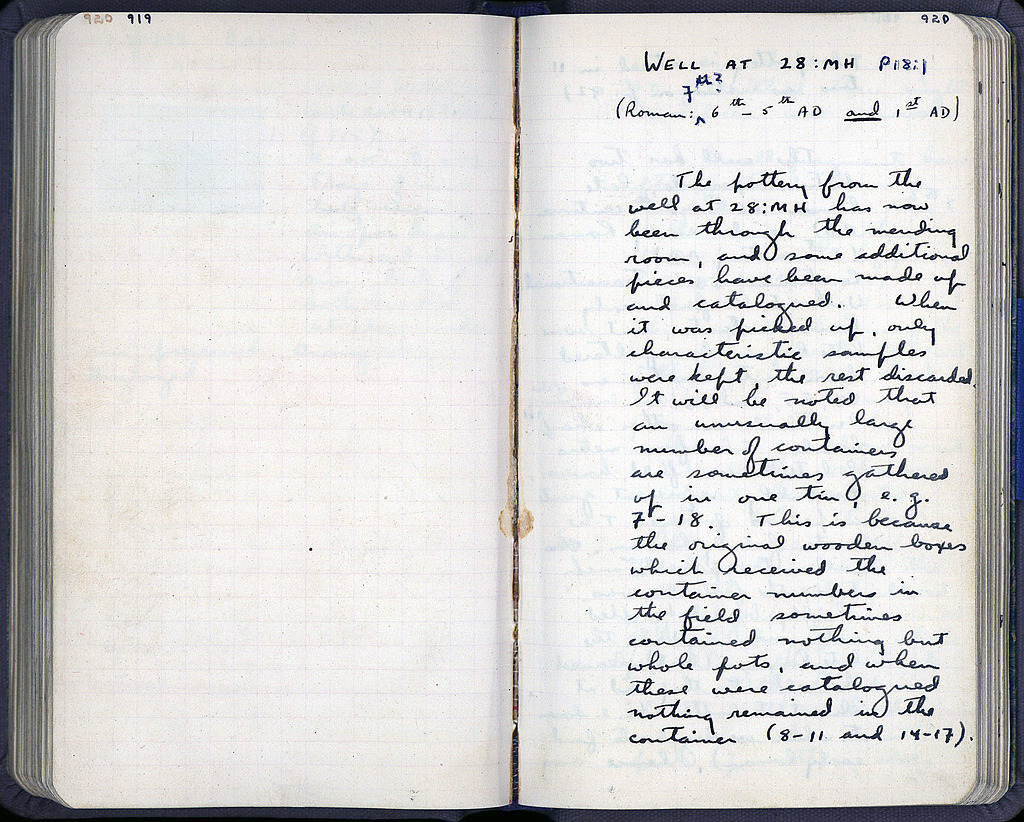 920 919
920
WELL AT 28:MH P18:1
7th?
(Roman: ^ 6th - 5th AD and 1st AD)
The pottery from the
well at 28:MH has now
been through the mending
room, and some additional
pieces have been made up
and catalogued. When
it was picked up, only
characteristic samples
were kept, the rest discarded.
It will be noted that
an unusually large
number of containers
are sometimes gathered
up in one tin, e.g.
7-18. This is because
the original wooden boxes
which received the
container numbers in
the field sometimes
contained nothing but
whole pots, and when
these were catalogued
nothing remained in the
container (8-11 and 14-17).